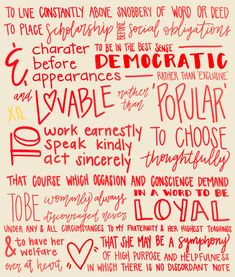 TO LIVE CONSTANTLY ABOVE SNOBBERY OF WORD OR DEED
TO PLACE Scholarship BEFORE social obligations
& charater before appearances
TO BE IN THE BEST SENSE
DEMOCRATIC
RATHER THAN "EXCLUSIVE"
and LOVABLE rather than "POPULAR"
ΧΩ
TO work earnestly
speak kindly
act sincerely
TO CHOOSE
thoughtfully
THAT COURSE WHICH OCCASION AND CONSCIENCE DEMAND
TO BE womanly always
discouraged never
IN A WORD TO BE
LOYAL
UNDER ANY & ALL CIRCUMSTANCES TO MY FRATERNITY & HER HIGHEST TEACHINGS
& to have her
welfare
ever at heart
THAT SHE MAY BE a symphony
OF HIGH PURPOSE AND HELPFULNESS
IN WHICH THERE IS NO DISCORDANT NOTE